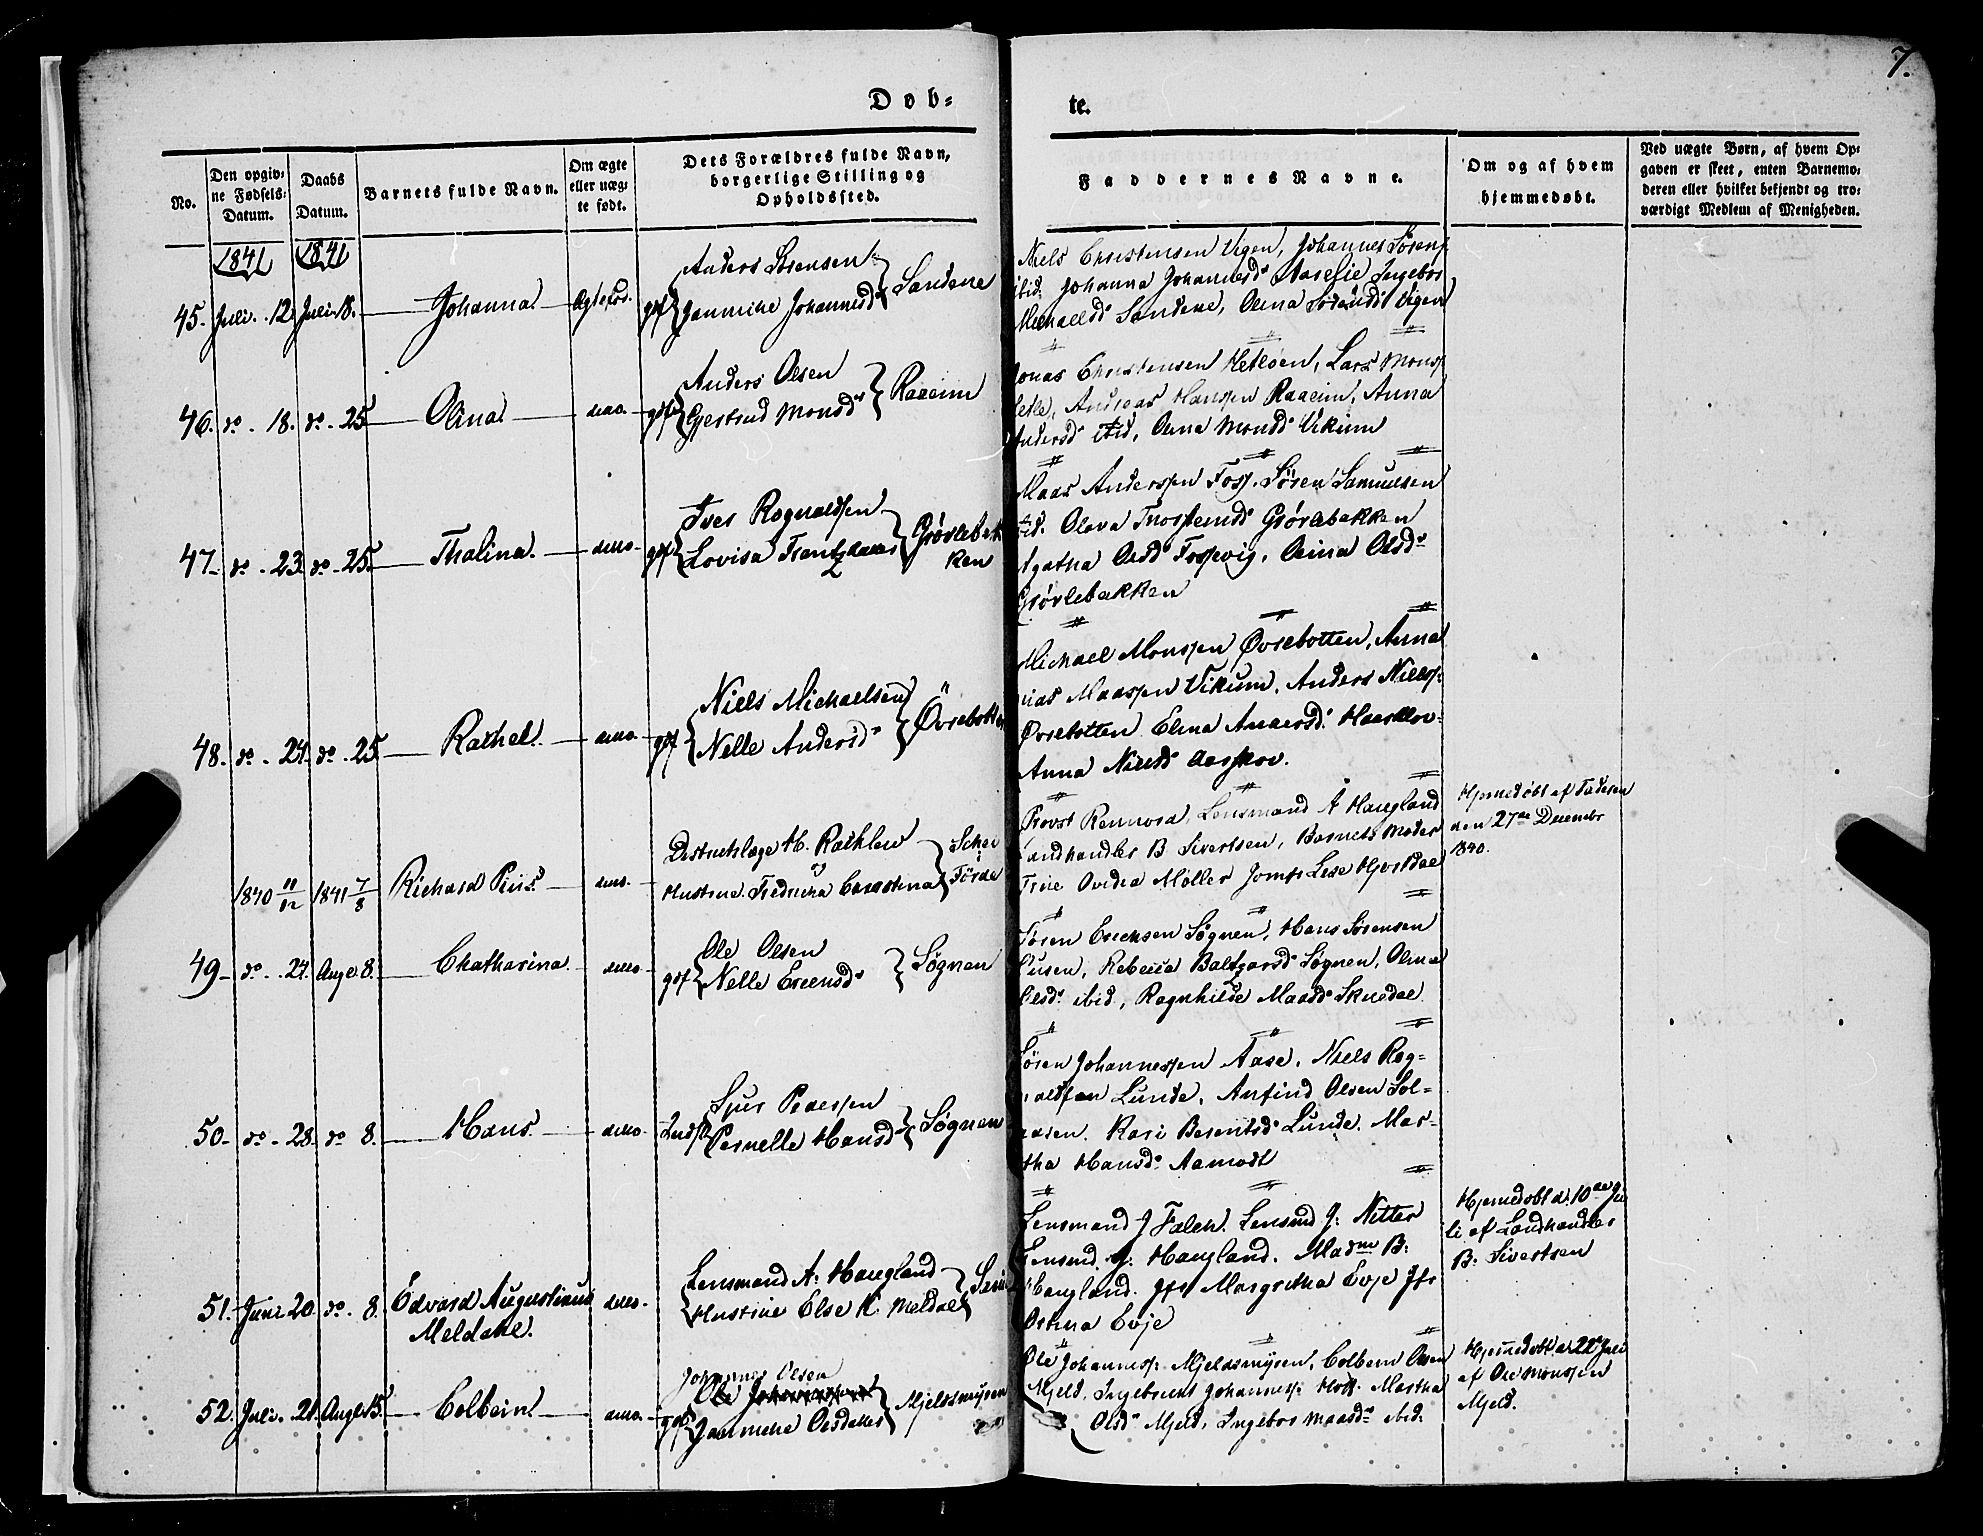 7.
Døb= te.
No.
Den opgiv=
ne Fødsels=
Datum.
Daabs
Datum.
Barnets fulde Navn.
Om ægte
eller uæg=
te født.
Dets Forældres fulde Navn,
borgerlige Stilling og
Opholdssted.
Faddernes Navne.
Om og af hvem
hjemmedøbt.
Ved uægte Børn, af hvem Op=
gaven er skeet, enten Barnemo=
deren eller hvilket bekjendt og tro=
værdigt Medlem af Menigheden.
1841 1841
45. Juli. 12 Juli 18. Johanna.
Anders Sørensen
Jannicke Johannesd Sandene
Niels Christensen Vigen, Johannes Sørens
ibid. Johanna Johannesd Aarelie Ingebor
Michaelsd Sandene, Olina Sørensd Vigen
46. do. 18. do. 25 Olina. do. gdf
Anders Olsen
Gjertrud Monsd Raaeim
Jonas Christensen Hetleen, Lars Mons
Andreas Hanssen Raaeim, Anna
Andersd ibid, Olina Monsd Vikum
47. do. 23. do. 25. Thalina. do. gdf
Iver Rognaldsen
Lovisa Frantzdatter Gjørlebak
ken
Maas Anderssen Foss. Søren Samuelsen
ibid. Olava Thorstensd Gjørlebakken
Agatha Olsd Fossevig, Olina Olsd
Gjørlebakken
48. do. 24. do. 25 Rachel. do. gdf
Niels Michaelsen
Nelle Andersd Øvrebotten
Michael Monssen Øvrebotten, Anna
nias Maassen Vikum, Anders Niels
Øvrebotten Elina Andersd
Anna Nielsd
1840 11/12 1841 7/8 Richard Pius. do.
Districtslæge H. Rathlew
og
Hustrue Fredricka Christina
Schei
i
Førde
Provst Rennord, Lensmand A Haugland
Landhandler B Sivertsen, Barnets Moder
Trine Ovidia Møller Jomfr Lise Hjortdal
Hjemedøbt af Faderen
den 27de December
1840.
49. do. 24. Aug. 8. Chatharina. do. gdf
Ole Olsen
Nelle Ericksd Søgnen
Søren Ericksen Søgnen, Hans Sørensen
Rebecca Baltzarsd Søgnen, Olina
Olsd ibid, Ragnhilde Maasd Skredal
50. do. 28. do 8. Hans. do.
Sjur Pederssen
Pernelle Hansd Søgnen
Søren Johannessen Aase, Niels Rog=
naldsen Lunde, Anfind Olsen Sol=
Kari Berentsd Lunde. Mar=
tha Hansd Aamodt
51. Juni 20. do. 8. Edvard Augustinus
Meldahl. do.
Lensmand A. Haugland
Hustrue Else K Meldal
Lensmand J Falch. Lensmd J. Nitter
Lensmd. J. Haugland. Madm B.
Haugland. Jfr Margretha Evje Jfr
Evje
Hjemedøbt d. 10de Ju
li af Landhandler
B. Sivertsen
52. Juli. 21. Aug. 15. Colbein. do. gdf
Johannes Olsen
Ole
Jannicke Olsdatter Mjeldsmyren
Ole Johannes. Mjeldsmyren, Colbein Olsen
Mjeld, Ingebricht Johannes. Martha
Olsd Mjeld, Ingebor Maasd ibid.
Hjemedøbt d. Juli
af Ole Monssen
Mjeld.